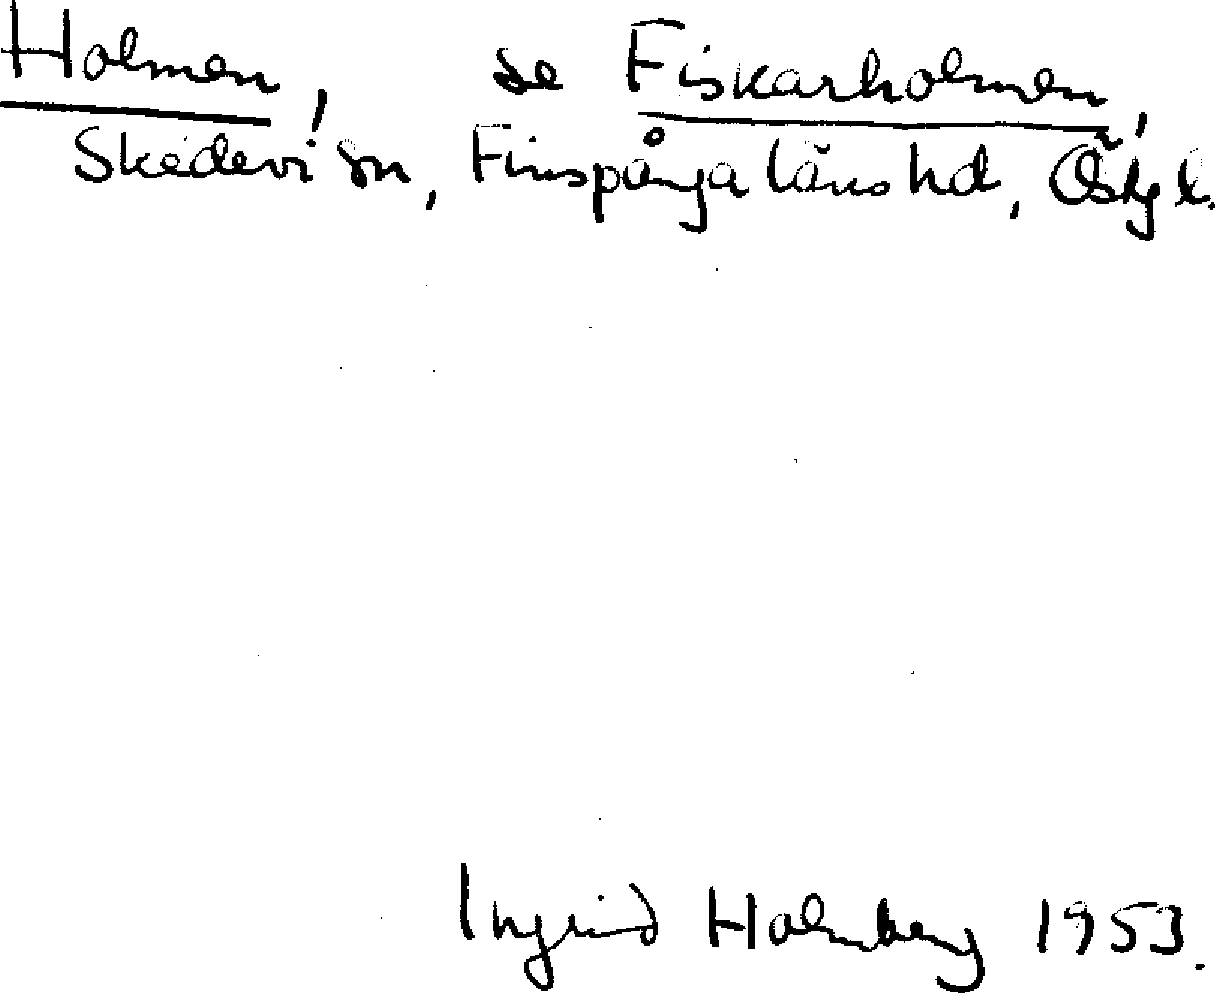 Holmen, se Fiskarholmen,
Skedevi sn, Finspånga läns hd, Östg l.
Ingrid Holmberg 1953.